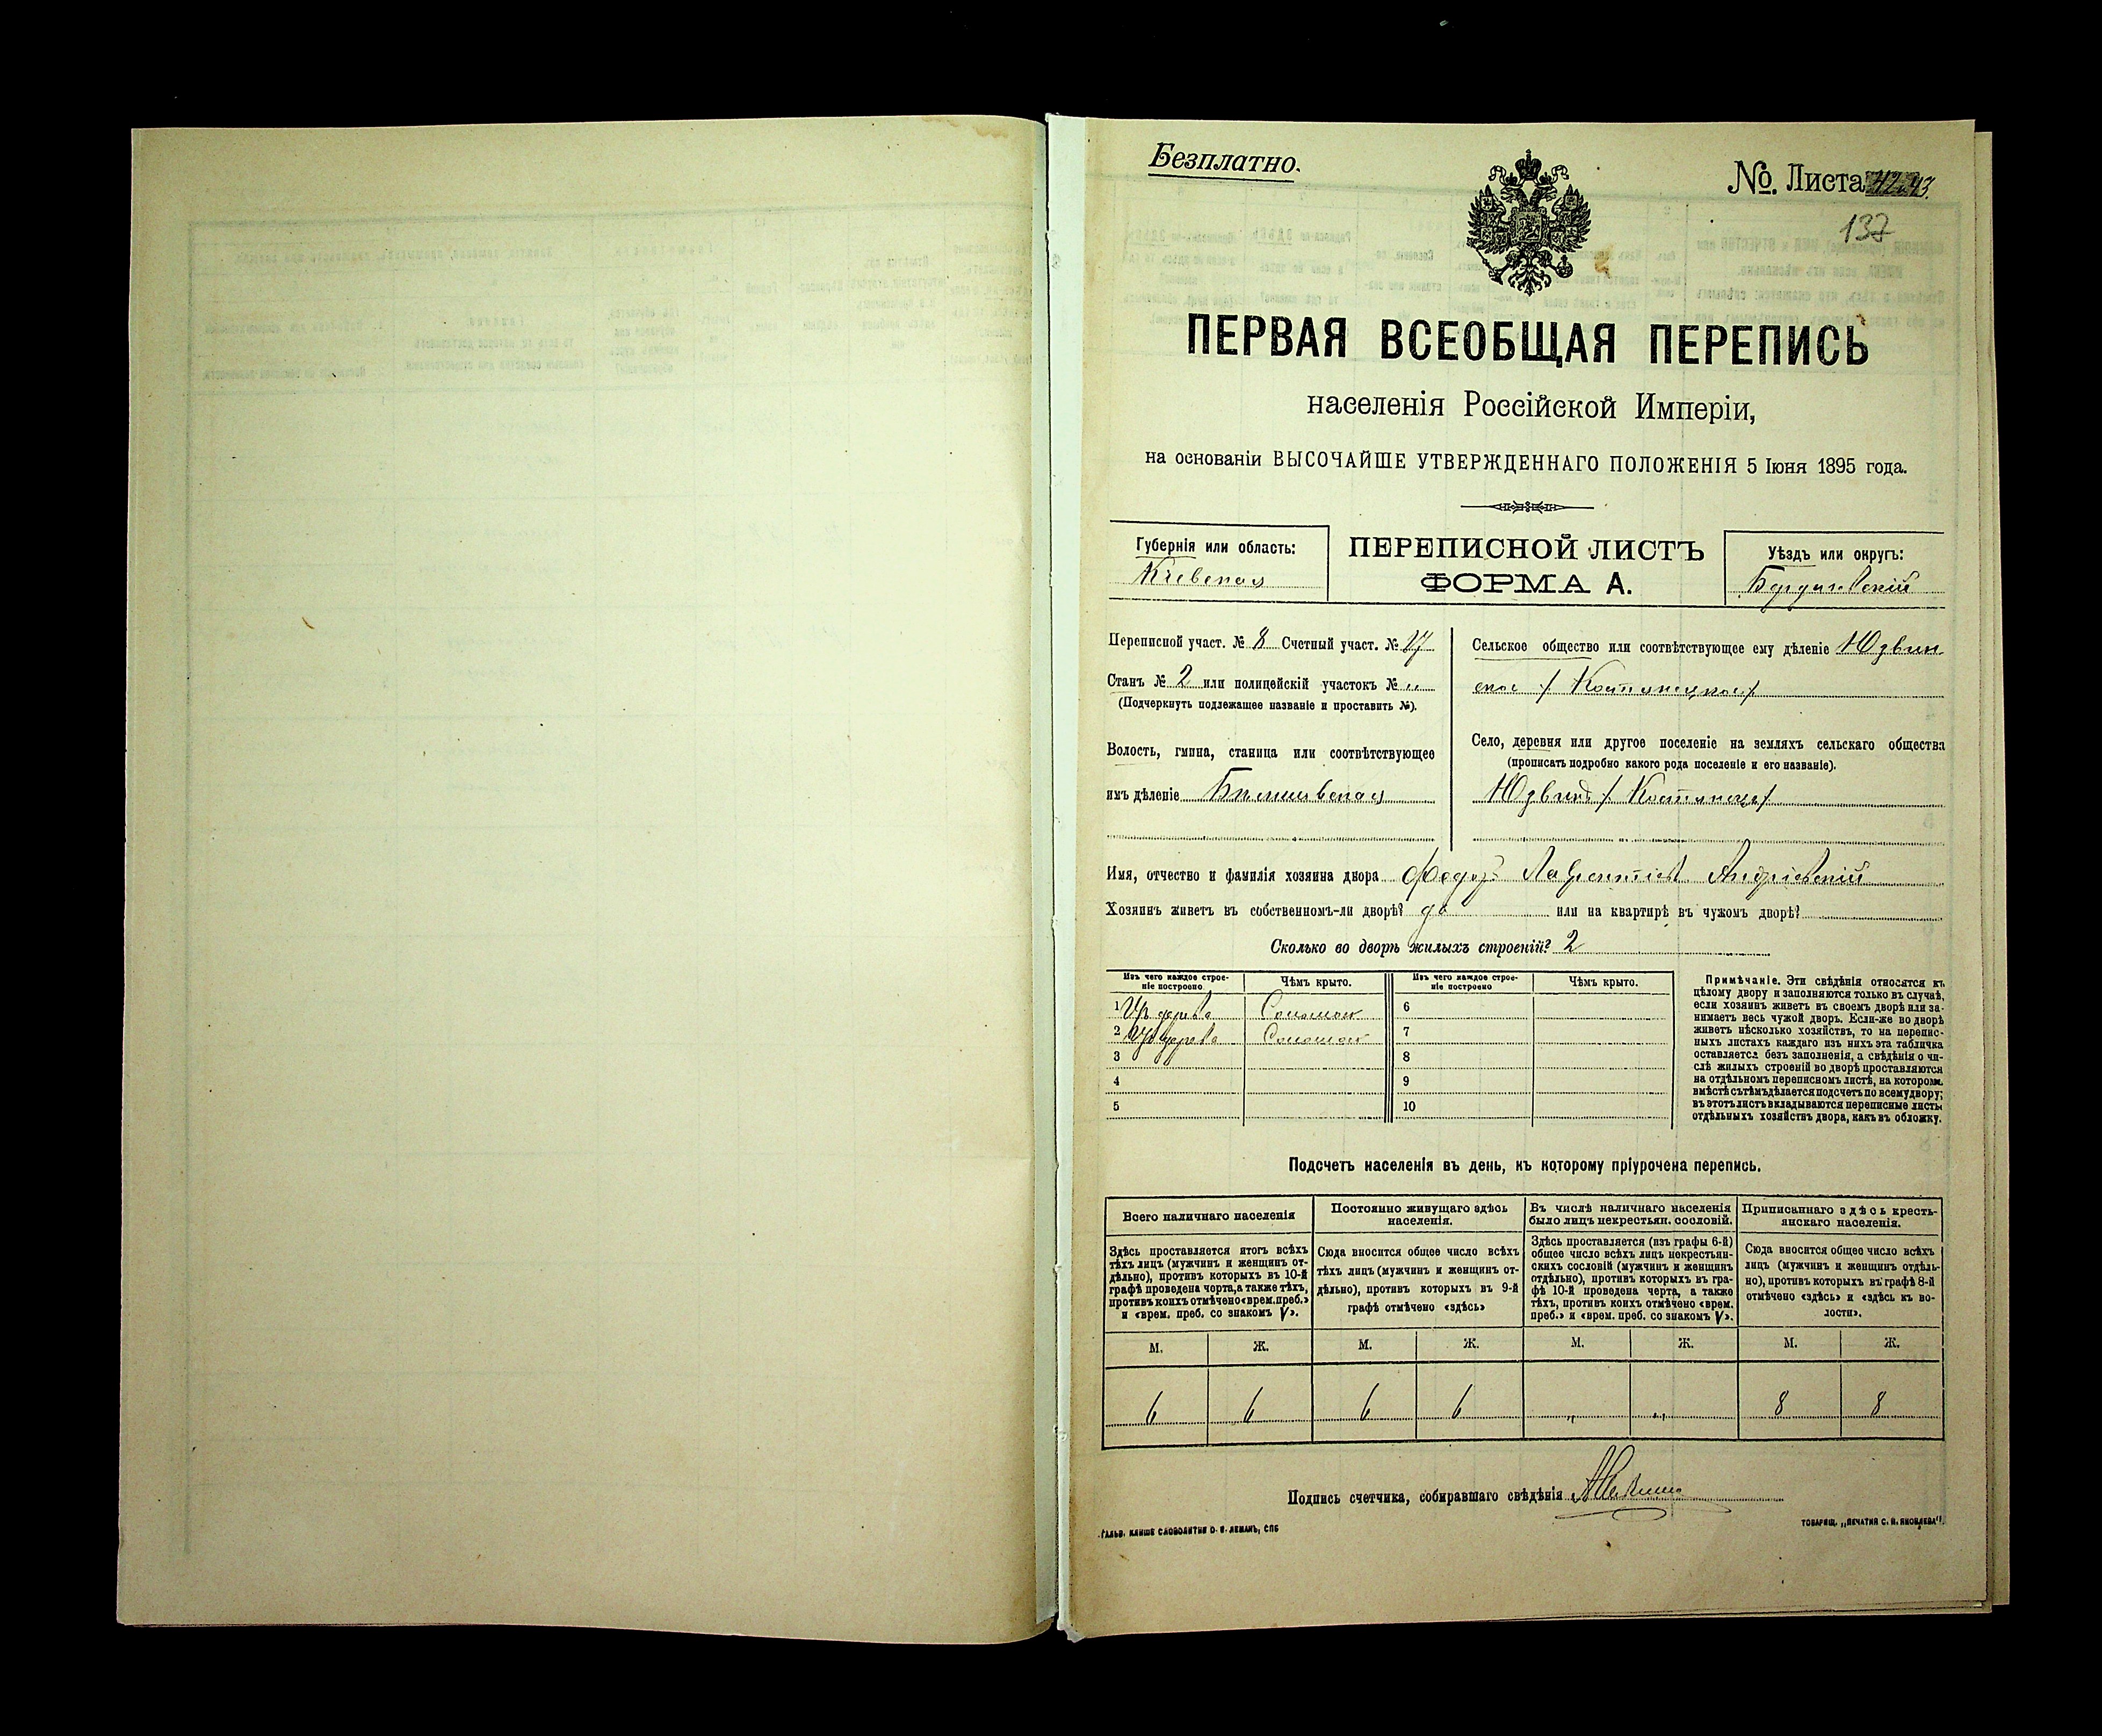 Безплатно.
№. Листа 43.
137
ПЕРВАЯ ВСЕОБЩАЯ ПЕРЕПИСЬ
населенія Россійской Имперіи,
на основаніи ВЫСОЧАЙШЕ УТВЕРЖДЕННАГО ПОЛОЖЕНІЯ 5 Іюня 1895 года.
Губернія или область:
Кіевская
ПЕРЕПИСНОЙ ЛИСТЪ
ФОРМА А.
Уѣздъ или округъ:
Бердичевскій
Переписной участ. № 8 Счетный участ. № 17
Станъ № 2 или полицейскій участокъ № „
(Подчеркнуть подлежащее названіе и проставить №).
Волость, гмина, станица или соотвѣтствующее
имъ дѣленіе
Сельское общество или соотвѣтствующее ему дѣленіе Юзвин
ское / Костянецкое /
Село, деревня или другое поселеніе на земляхъ сельскаго общества
(прописать подробно какого рода поселеніе и его названіе).
Юзвинъ / Костянецъ /
Имя, отчество и фамилія хозяина двора Федоръ Лаврентіевъ Андріевскій
Хозяинъ живетъ въ собственномъ-ли дворѣ? да или на квартирѣ въ чужомъ дворѣ?
Сколько во дворѣ жилыхъ строеній? 2
Изъ чего каждое строе-
ніе построено
Чѣмъ крыто.
Изъ чего каждое строе-
ніе построено
Чѣмъ крыто.
1 Изъ дерева Соломою 6
2 Изъ дерева Соломою 7
3 8
4 9
5 10
Примѣчаніе. Эти свѣдѣнія относятся къ
цѣлому двору и заполняются только въ случаѣ,
если хозяинъ живетъ въ своемъ дворѣ или за-
нимаетъ весь чужой дворъ. Если-же во дворѣ
живетъ нѣсколько хозяйствъ, то на перепис-
ныхъ листахъ каждаго изъ нихъ эта табличка
оставляется безъ заполненія, а свѣдѣнія о чи-
слѣ жилыхъ строеній во дворѣ проставляются
на отдѣльномъ переписномъ листѣ, на которомъ
вмѣстѣ съ тѣмъ дѣлается подсчетъ по всему двору;
въ этотъ листъ вкладываются переписные листы
отдѣльныхъ хозяйствъ двора, какъ въ обложку.
Подсчетъ населенія въ день, къ которому пріурочена перепись.
Всего наличнаго населенія
Здѣсь проставляется итогъ всѣхъ
тѣхъ лицъ (мужчинъ и женщинъ от-
дѣльно), противъ которыхъ въ 10-й
графѣ проведена черта, а также тѣхъ,
противъ коихъ отмѣчено «врем. преб.»
и «врем. преб. со знакомъ V».
Постоянно живущаго здѣсь
населенія.
Сюда вносится общее число всѣхъ
тѣхъ лицъ (мужчинъ и женщинъ от-
дѣльно), противъ которыхъ въ 9-й
графѣ отмѣчено «здѣсь»
Въ числѣ наличнаго населенія
было лицъ некрестьян. сословій.
Здѣсь проставляется (изъ графы 6-й)
общее число всѣхъ лицъ некрестьян-
скихъ сословій (мужчинъ и женщинъ
отдѣльно), противъ которыхъ въ гра-
фѣ 10-й проведена черта, а также
тѣхъ, противъ коихъ отмѣчено «врем.
преб.» и «врем. преб. со знакомъ V».
Приписаннаго здѣсь кресть-
янскаго населенія.
Сюда вносится общее число всѣхъ
лицъ (мужчинъ и женщинъ отдѣль-
но), противъ которыхъ въ графѣ 8-й
отмѣчено «здѣсь» и «здѣсь къ во-
лости».
М. Ж. М. Ж. М. Ж. М. Ж.
6 6 6 6 „ „ 8 8
Подпись счетчика, собиравшаго свѣдѣнія
ГАЛЬВ. КЛИШЕ СЛОВОЛИТНИ О. И. ЛЕМАНЪ, СПБ
ТОВАРИЩ. „ПЕЧАТНЯ С. П. ЯКОВЛЕВА".